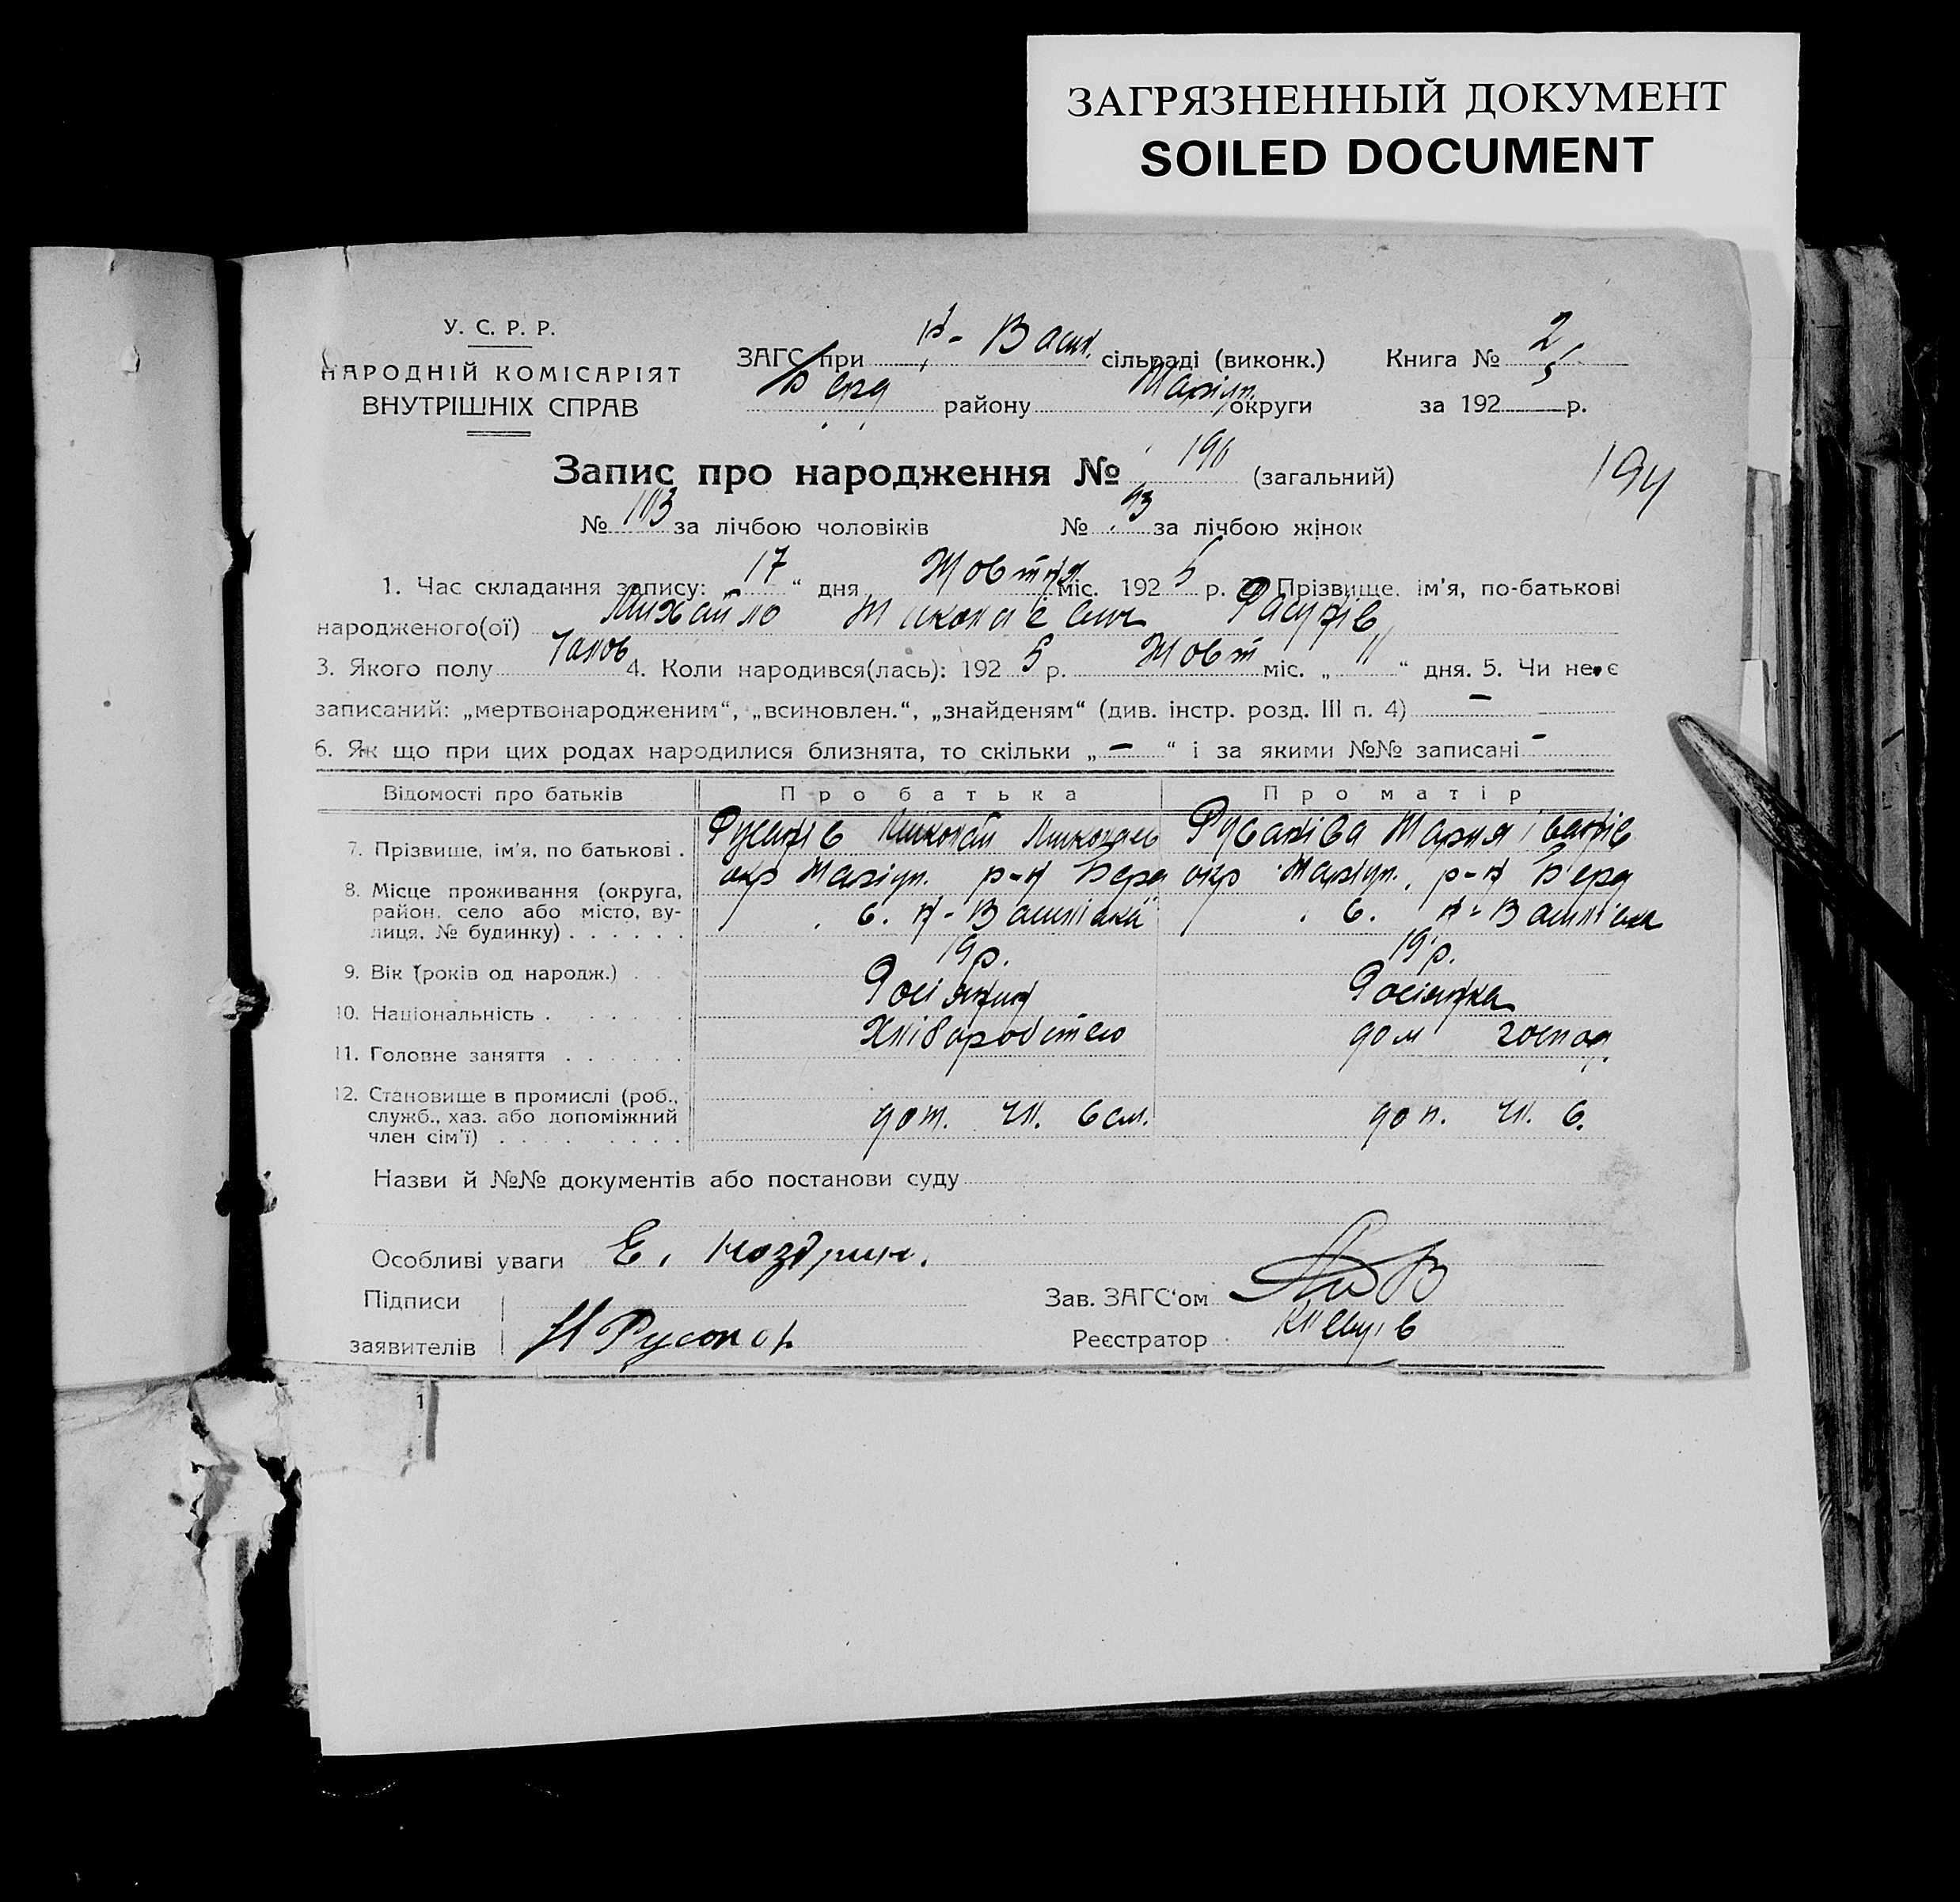 ЗАГРЯЗНЕННЫЙ ДОКУМЕНТ
SOILED DOCUMENT
У. С. Р. Р.
НАРОДНІЙ КОМІСАРІЯТ
ВНУТРІШНІХ СПРАВ
ЗАГС при Н- Васил. сільраді (виконк.) Книга № 2
Берд району Маріуп. округи за 192 5 р.
Запис про народження № (загальний)
194
№ 103 за лічбою чоловіків № за лічбою жінок
1. Час складання запису: 17 “ дня Жовтня міс. 192 5 р. 2. Прізвище, ім'я, по-батькові
народженого(ої) Михайло Миколаєвич
3. Якого полу Чолов 4. Коли народився(лась): 192 5 р. Жовт міс. „ 11 “ дня. 5. Чи не є
записаний: „мертвонародженим“, „всиновлен.“, „знайденям“ (див. інстр. розд. III п. 4) —
6. Як що при цих родах народилися близнята, то скільки „ — “ і за якими №№ записані -
Відомості про батьків Про батька Про матір
7. Прізвище, ім'я, по батькові . Русанів Николай Николаев Русаніва Мария Іванів
8. Місце проживання (округа, окр Маріуп. р-н Берд окр Маріуп. р-н Берд
район, село або місто, ву- с. Н-Василівка с. Н-Василівка
лиця, № будинку) . . . . . .
9. Вік (років од народж.) . . 19 р. 19 р.
10. Національність . . . . . . Росіянин Росіянка
11. Головне заняття . . . . . . Хліборобство дом господ
12. Становище в промислі (роб.,
служб., хаз. або допоміжний доп. чл. сем. доп. чл. с.
член сім'ї) . . . . . . . .
Назви й №№ документів або постанови суду
Особливі уваги Е.
Підписи Зав. ЗАГС'ом
заявителів Н Русанов Реєстратор
1